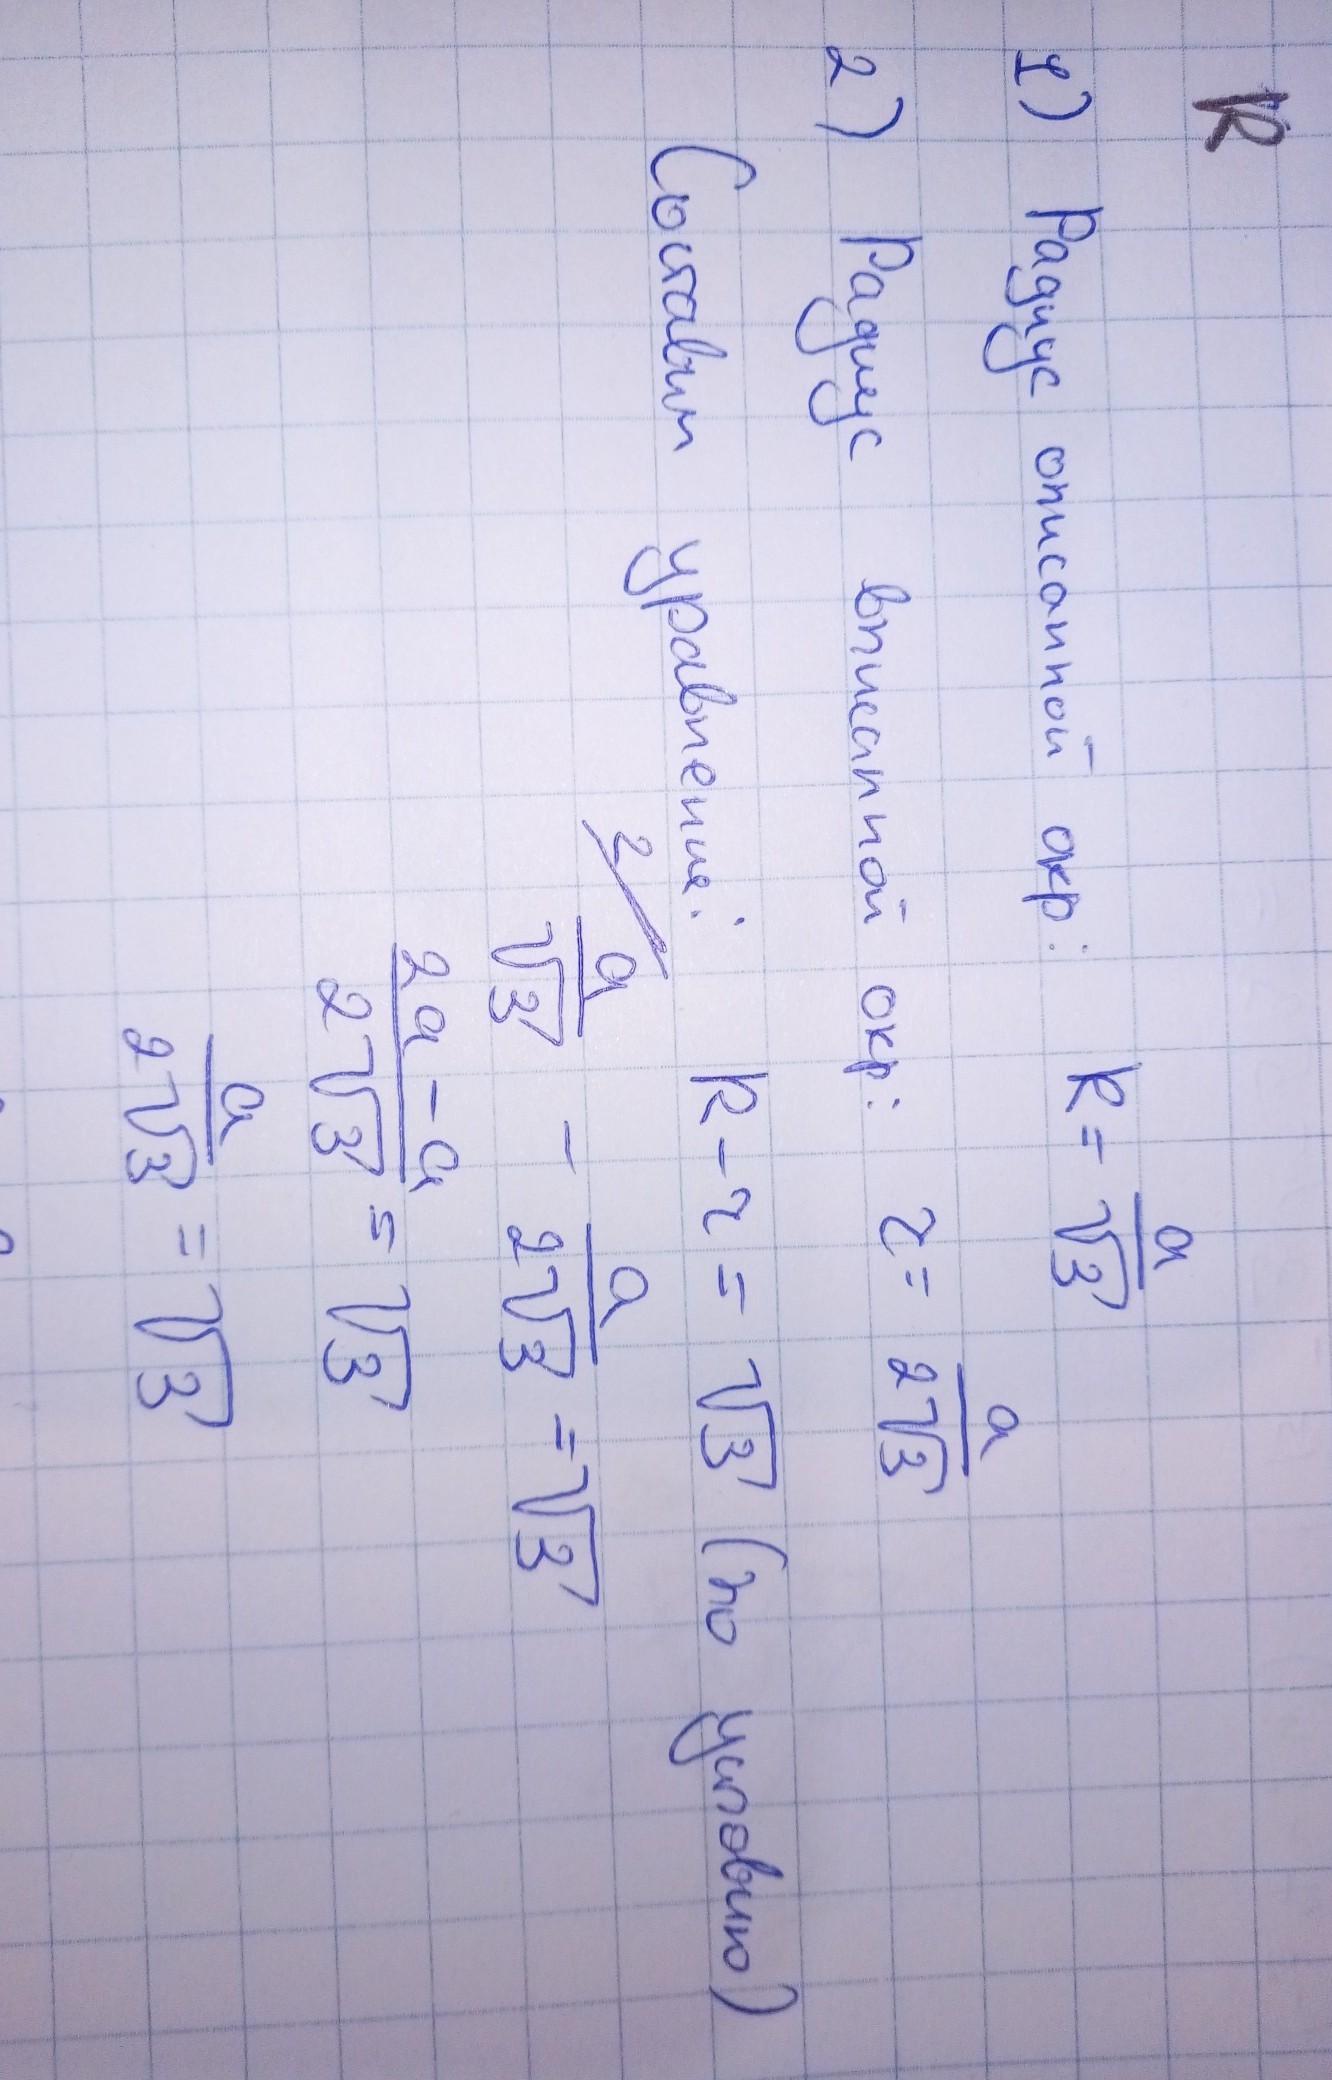 R
1) Радиус описанной окр: R = a/√3
2) Радиус вписанной окр: r = a/2√3
Составим уравнение: R - r = √3 (по условию)
2/ a/√3 - a/2√3 = √3
2a - a/2√3 = √3
a/2√3 = √3